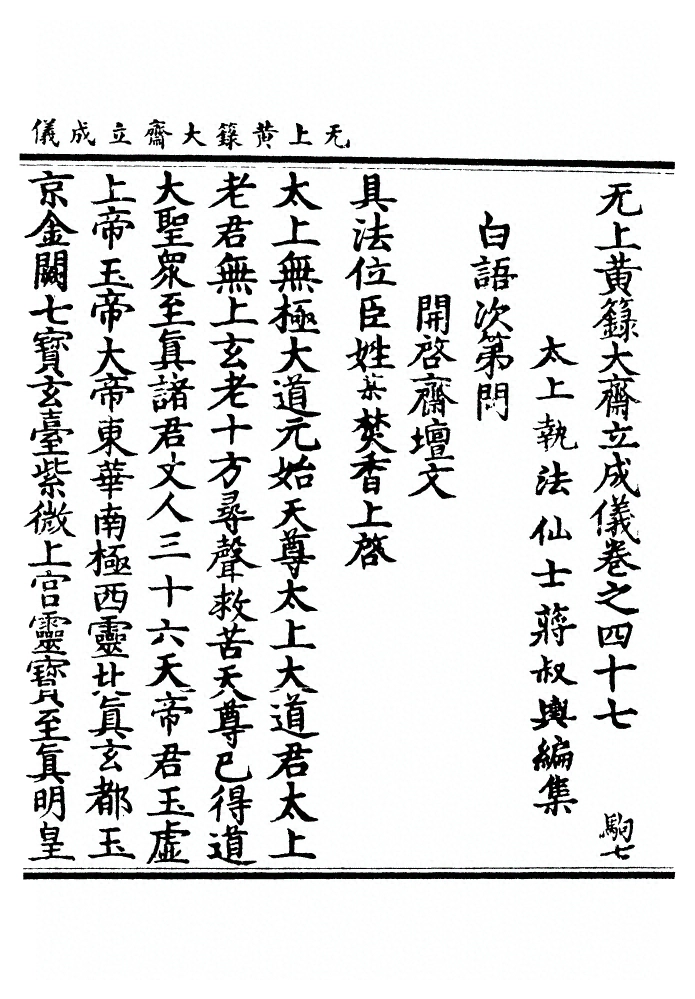 无上黄籙大齋立成儀
无上黄籙大齋立成儀卷之四十七 駒七
太上執法仙士蔣叔輿編集
白語次第門
開啓齋壇文
具法位臣姓某焚香上啓
太上無極大道元始天尊太上大道君太上
老君無上玄老十方尋聲救苦天尊已得道
大聖衆至眞諸君丈人三十六天帝君玉虛
上帝玉帝大帝東華南極西靈北眞玄都玉
京金闕七寶玄臺紫微上宫靈寶至眞明皇